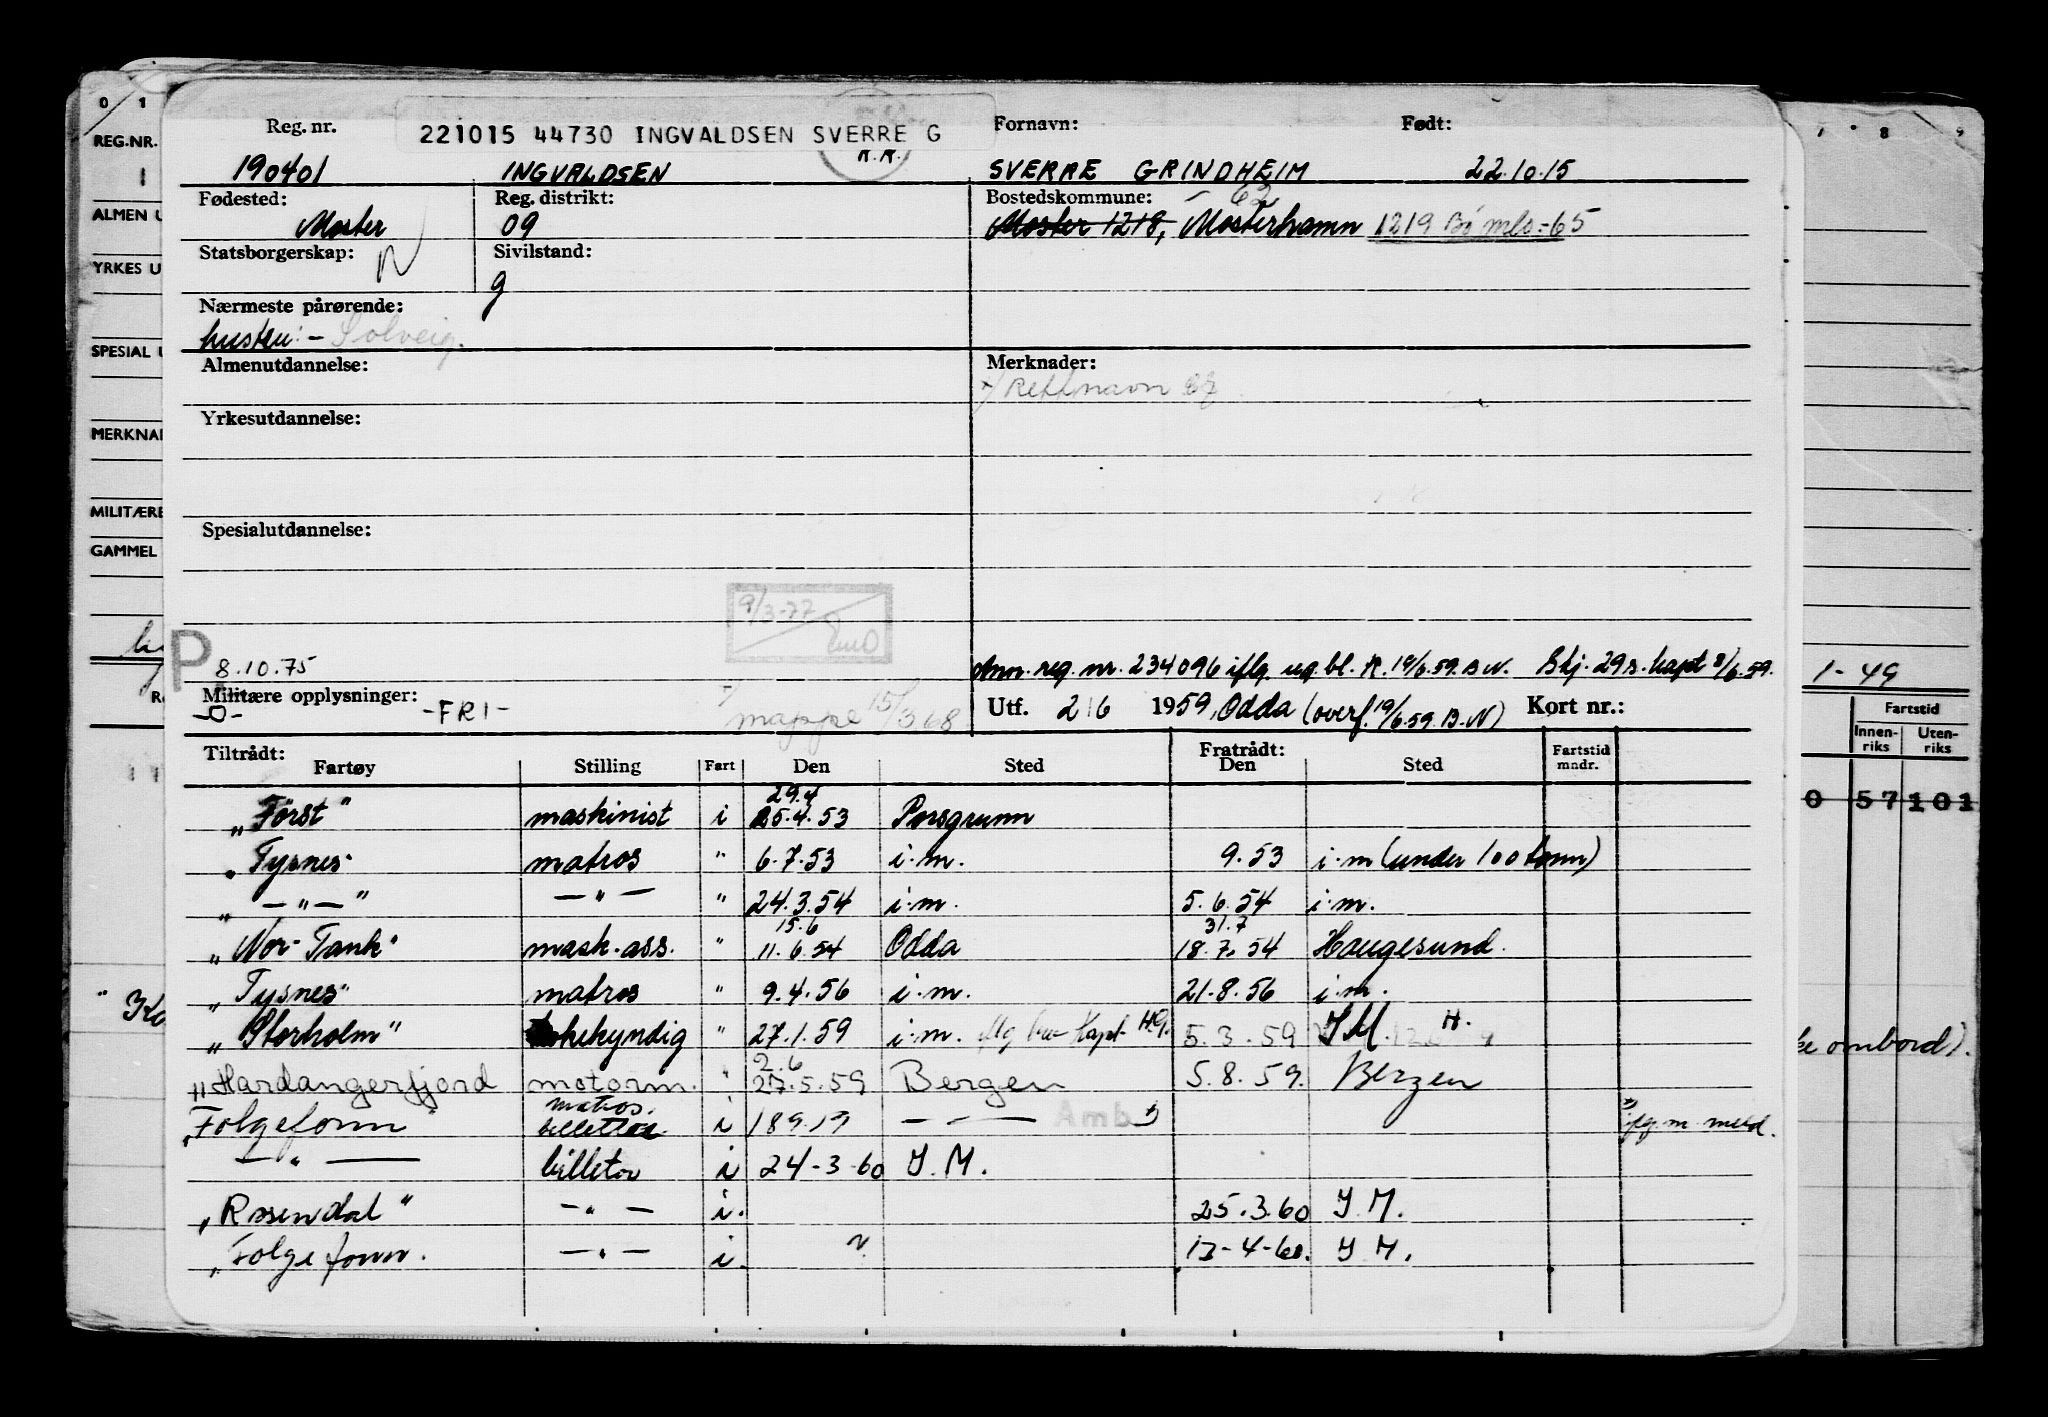 0 1
REG.NR.
ALMEN U
YRKES U
SPESIAL U
MERKNA
MILITÆRE
GAMMEL
7 8 9
1 - 49
Fartstid
Innen-riks Uten-riks
0 57 101
ombord).
Reg. nr. 221015 44730 INGVALDSEN SVERRE G Fornavn: Født:
190401 INGVALDSEN R.R. SVERRE GRINDHEIM 22.10.15
Fødested: Reg. distrikt: Bostedskommune: 62
Moster 09 Moster 1218, Mosterhamn 1219 Bømlo -65
Statsborgerskap: N Sivilstand:
g
Nærmeste pårørende:
hustru: - Solveig.
Almenutdannelse: Merknader:
Rett navn
Yrkesutdannelse:
Spesialutdannelse:
9/3-77
P 8.10.75
Anm. reg. nr. 234096 iflg. reg. bl. R. 19/6.59. B.N. Skj. 29 s. kapt 8/6.59.
Militære opplysninger:
-0- -FRI- mappe 15/3 68 Utf. 2/6 1959, Odda (overf. 19/6.59. B.N) Kort nr.:
Tiltrådt: Fratrådt:
Fartøy Stilling Fart Den Sted Den Sted Fartstid mndr.
29.4
"Forst" maskinist i 25.4.53 Porsgrunn
"Tysnes" matros " 6.7.53 i.m. 9.53 i.m (under 100 tonn)
" — " — " — " — " 24.3.54 i.m. 5.6.54 i.m.
15.6 31.7
"Nor-Tank" mask.ass. " 11.6.54 Odda 18.7.54 Haugesund.
"Tysnes" matros " 9.4.56 i.m. 21.8.56 i.m.
"Storholm" kokekyndig " 27.1.59 i.m. 5.3.59 I M. H.
2.6
"Hardangerfjord motorm. " 27.5.59 Bergen 5.8.59. Bergen
matros.
"Folgefonn" billettør i 18 9.59 — — — Amb
iflg. m. meld.
— " — billetør i 24-3-60 I. M.
"Rosendal" — " — i. 25.3.60 I. M.
"Folgefonn. — " — i. 12-4-60. I M.